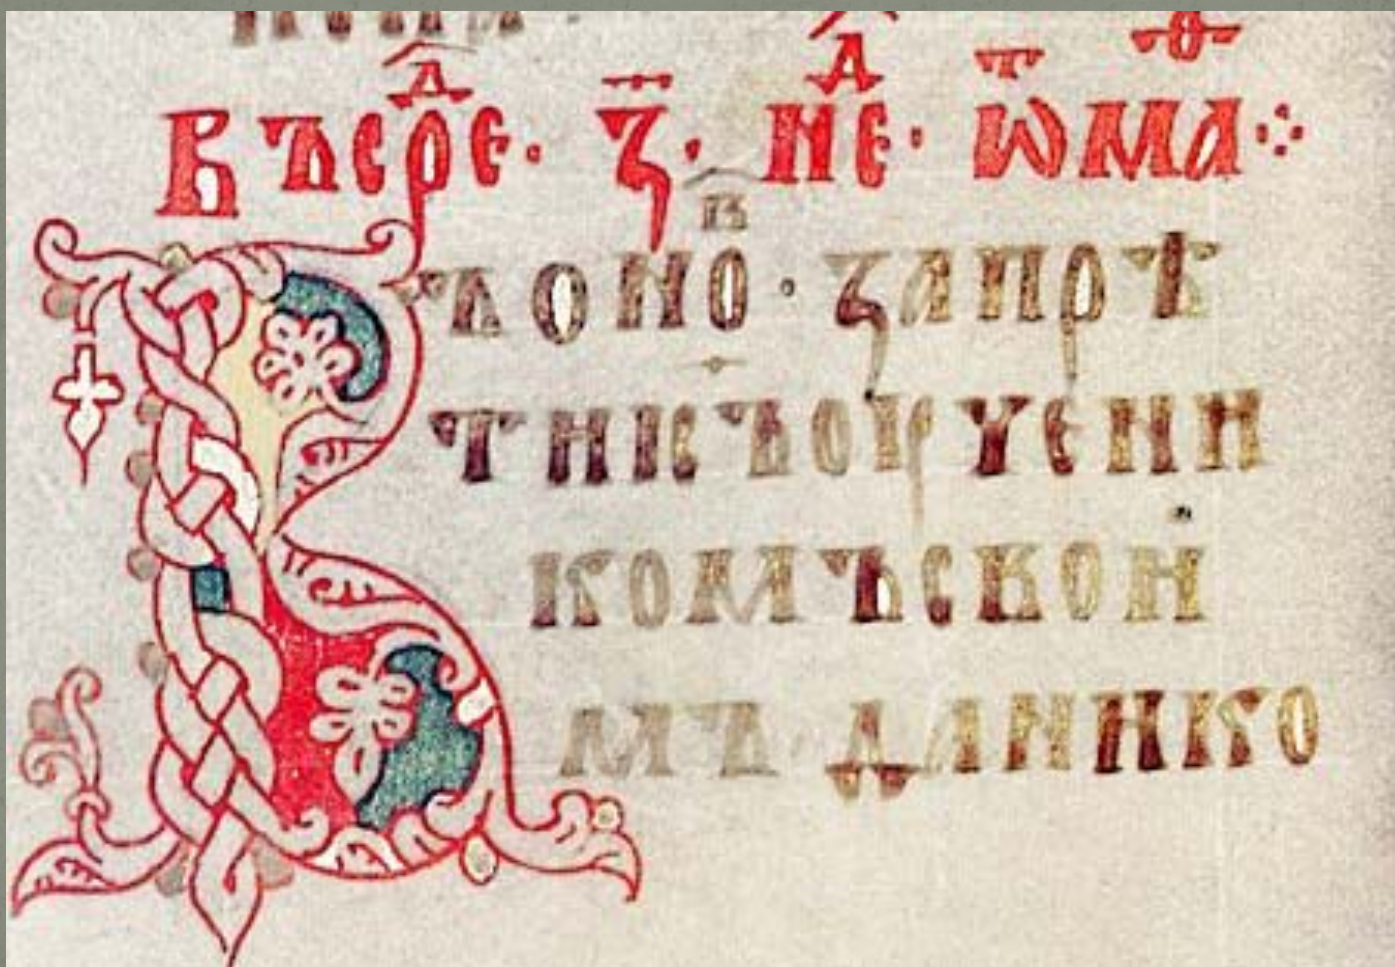 ВЪСРⷣЕ· З҃· НЕⷣ· ѾМАⷴ ⁘
ВЪОНОⷡ· ЗАПРѢ
ТИІС҃ЪОУЧЕНИ
КОМЪСВОИ
МЪ·ДАНИКО